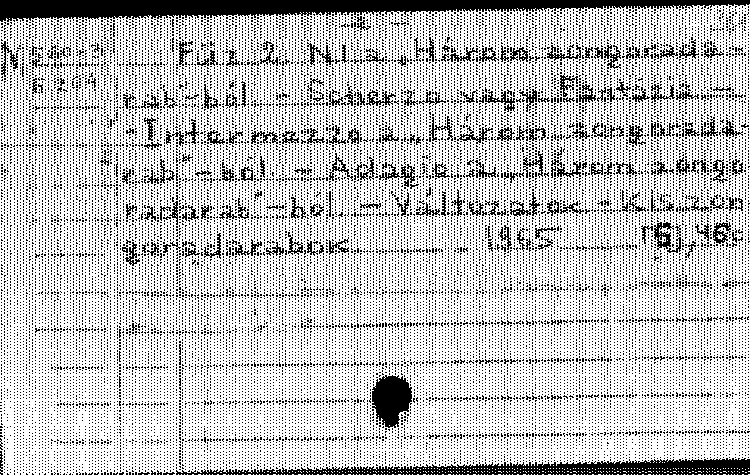 Füz 2. N1 a „Három zongorada-
rab"-ból. - Scherzo vagy Fantázia -
- Intermezzo a „Három zongorada-
rab"-ból. - Adagio a „Három zongo
radarab"-ból. - Változatok - Kis zon
goradarabok 1965 [6], 46